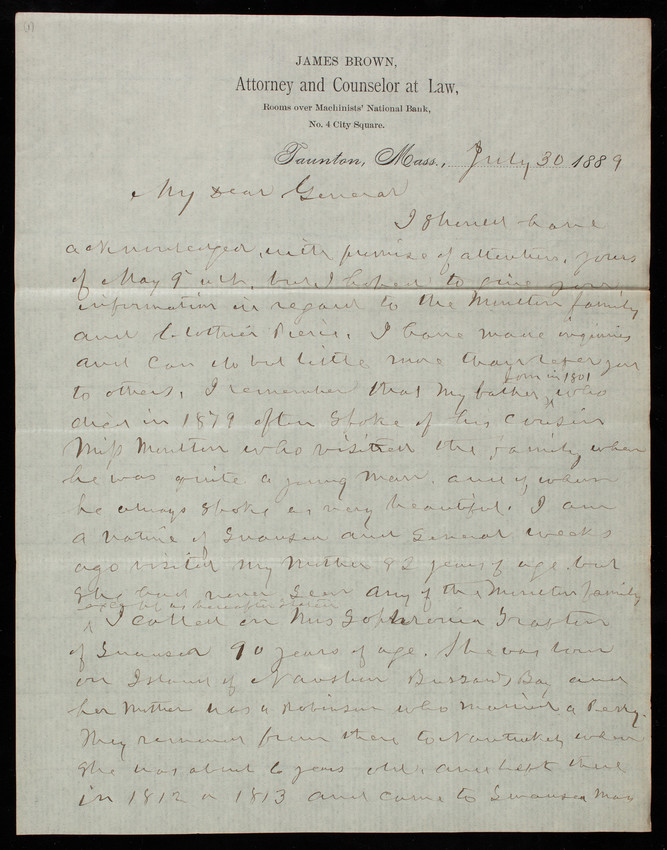 (1)
JAMES BROWN,
Attorney and Counselor at Law,
Rooms over Machinists' National Bank,
No. 4 City Square.
Taunton, Mass., July 30 1889
My Dear General
I should have
acknowledged, with promise of attention, yours
of May 9" but I hoped to give you
information in regard to the Minuton family
and Pierce. I have made inquiries
and can do but little more than refer you
born in 1801
to others. I remember that my father who
died in 1879 often spoke of his cousin
Miss who visited the family when
he was quite a young man and of whom
he always spoke as very beautiful. I am
a native of Swansea and several weeks
ago visited my Mother 82 years of age but
she had never seen any of the family
except as hereafter stated
I called on Mrs Sophronia
of Swansea 90 years of age. She was born
on Island of Naushon Buzzards Bay and
her Mother was a Robinson who married a Perry.
They removed from there to Nantucket when
she was about 6 years old, and left there
in 1812 or 1813 and came to Swansea Mass